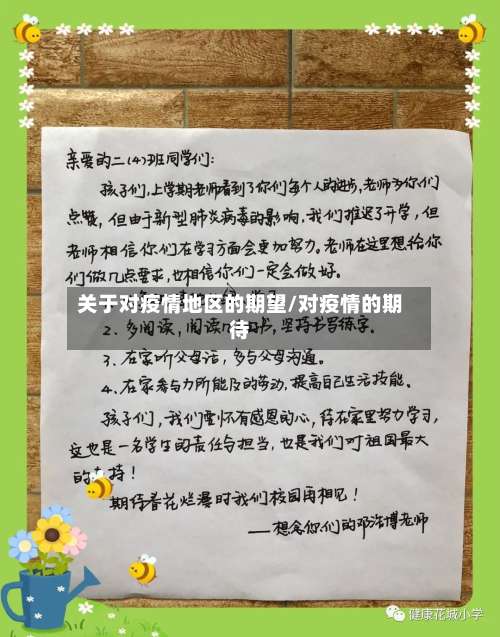 亲爱的二(4)班同学们:
孩子们,上学期老师看到了你们每个人的进步,老师为你们
点赞,但由于新型肺炎病毒的影响,我们推迟了开学,但
老师相信你们在学习方面会更加努力。老师在这里想给你
们做几点要求,也相信你们一定会做好。
关于对疫情地区的期望/对疫情的期
待
2、多阅读,阅读,坚持书写练字。
3、在家听父母话,多与父母沟通。
4、在家参与力所能及的劳动,提高自己生活技能。
孩子们,我们要怀有感恩的心,待在家里努力学习,
这也是一名学生的责任与担当,也是我们对祖国最大
的支持!
期待春花烂漫时我们校园再相见!
——想念你们的邓浩博老师
健康花城小学